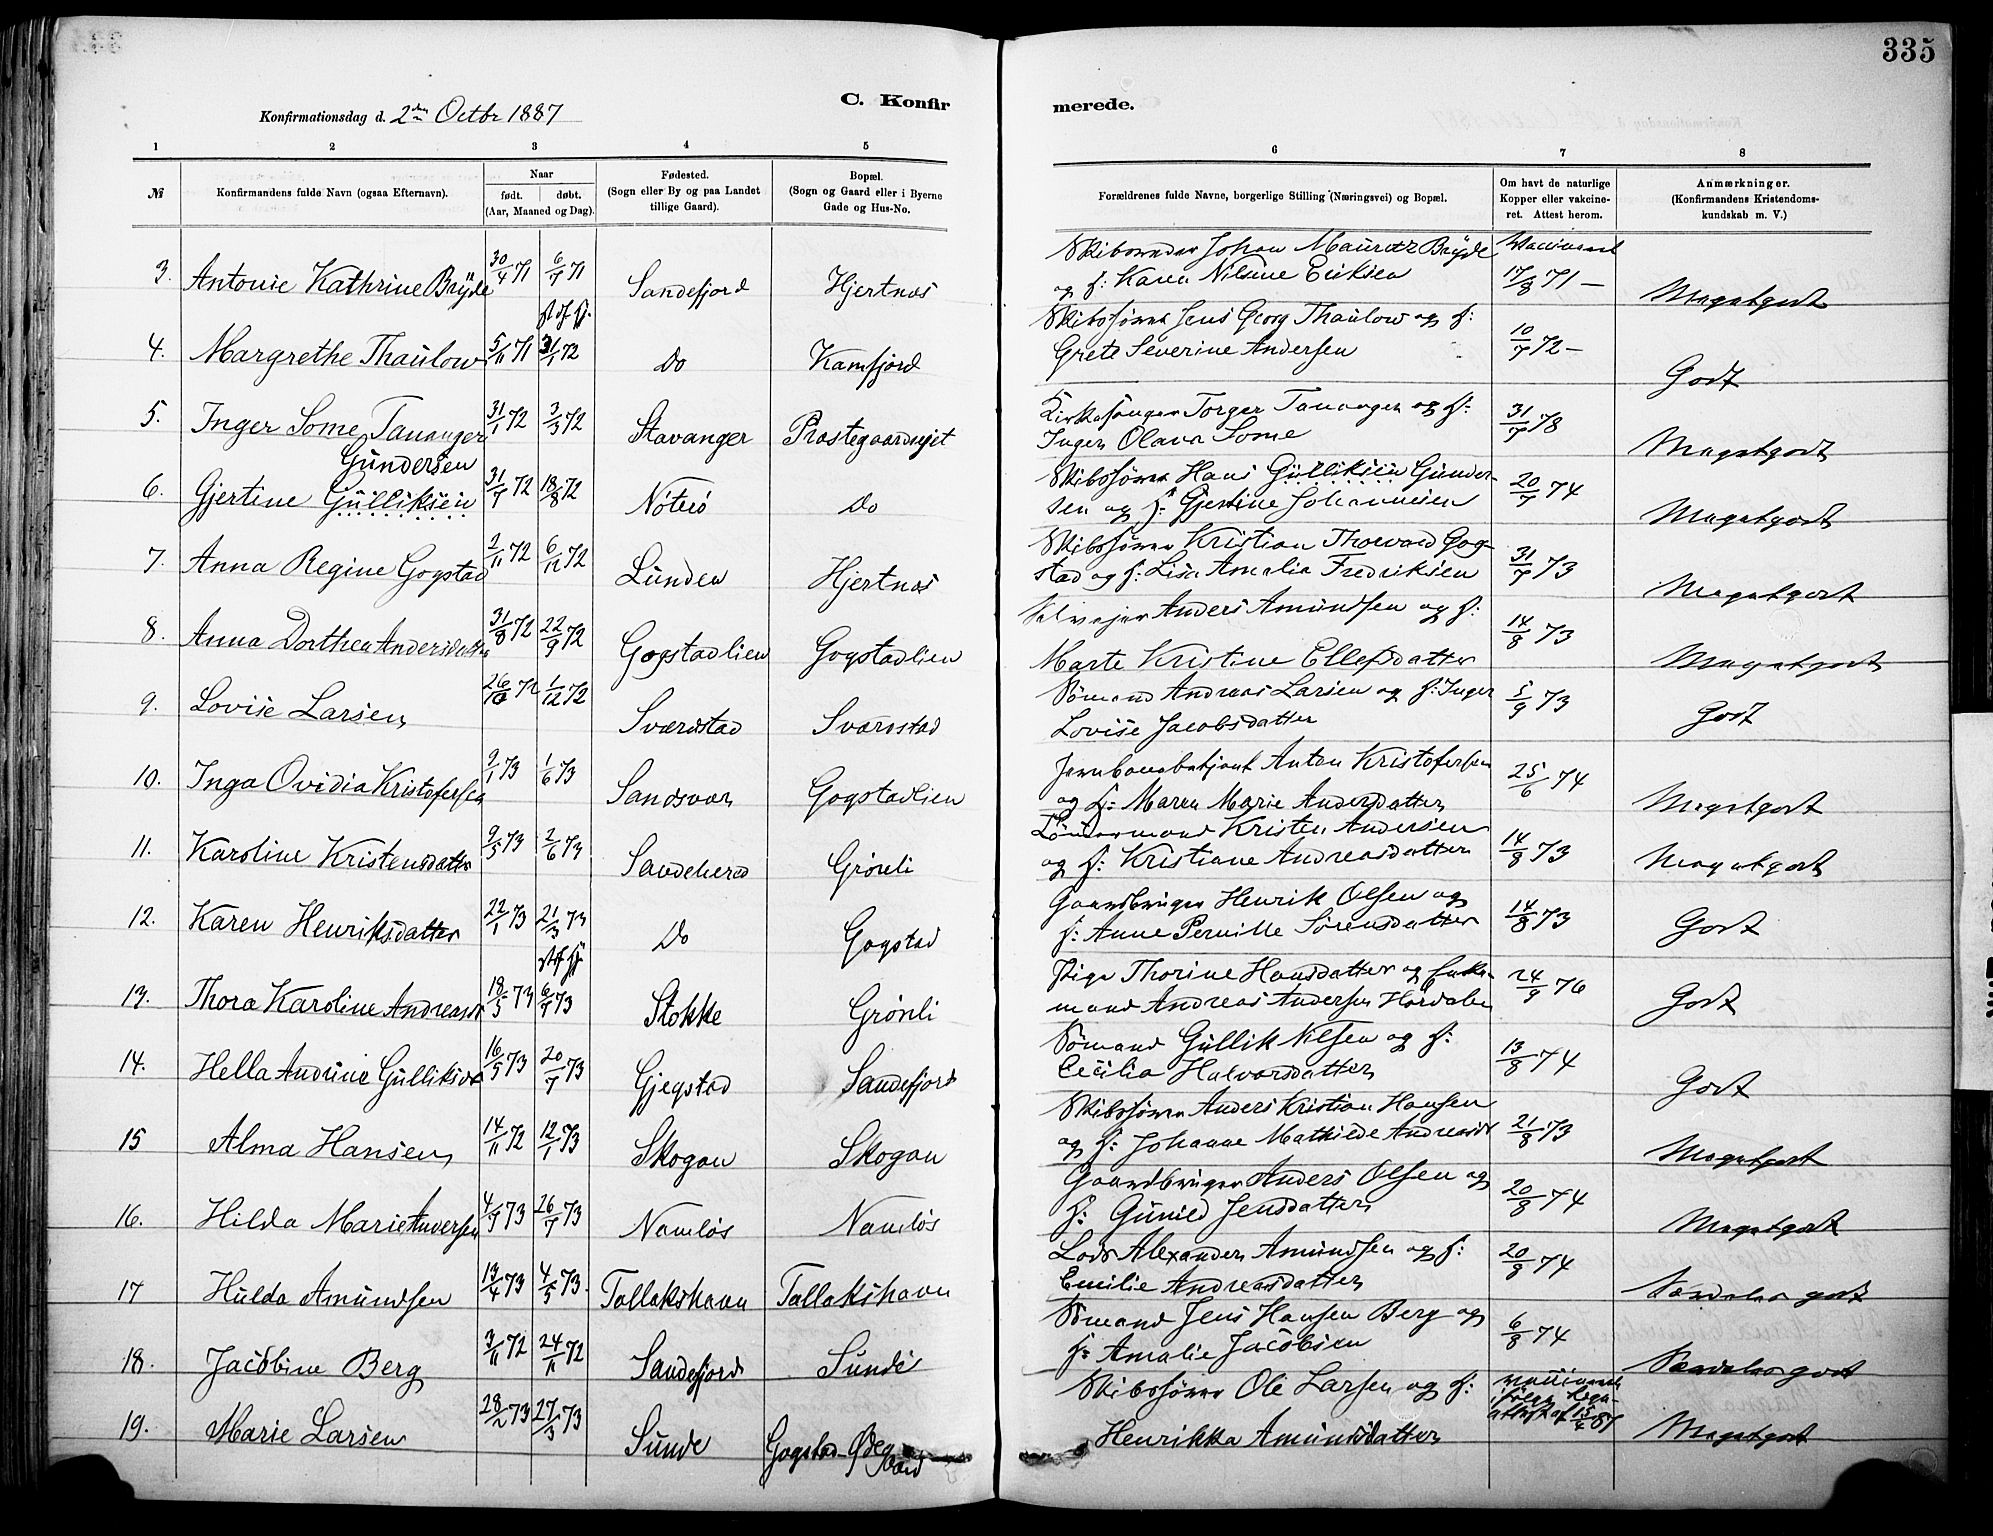 335
C. Konfirmerede.
Konfirmationsdag d. 2den Octbr 1887
1 2 3 4 5 6 7 8
№ Konfirmandens fulde Navn (ogsaa Efternavn). Naar født. døbt. (Aar, Maaned og Dag). Fødested. (Sogn eller By og paa Landet tillige Gaard). Bopæl. (Sogn og Gaard eller i Byerne Gade og Hus-No. Forældrenes fulde Navne, borgerlige Stilling (Næringsvei) og Bopæl. Om havt de naturlige Kopper eller vakcineret. Attest herom. Anmærkninger. (Konfirmandens Kristendomskundskab m. V.)
3. Antonie Kathrine Bryde 30/4 71 6/7 71 Sandefjord Hjertnæs Skibsreder Johan Mauretz Bryde og H: Karen Nilsine Eriksen Vaccineret 17/8 71 — Megetgodt
st df hj.
4. Margrethe Thaulow 5/11 71 31/1 72 Do Kamfjord Skibsfører Jens Georg Thaulow og H: Grete Severine Andersen 10/7 72 — Godt
5. Inger Some Tananger 31/1 72 3/3 72 Stavanger Præstegaardsejet Kirkesanger Torger Tananger og H: Inger Olava Some 31/7 78 Megetgodt
Gundersen
6. Gjertine Gulliksen 31/7 72 18/8 72 Nøterø Do Skibsfører Hans Gulliksen Gundersen og H: Gjertine Johannesen 20/7 74 Megetgodt
7. Anna Regine Gogstad 2/11 72 6/12 72 Lunden Hjertnæs Skibsfører Kristian Thorvald Gogstad og H: Lisa Amalia Fredriksen 31/7 73 Megetgodt
8. Anna Dorthea Andersdatter 31/8 72 22/9 72 Gogstadlien Gogstadlien Selvejer Anders Amundsen og H: Marte Kristine Ellefsdatter 14/8 73 Megetgodt
9. Lovise Larsen 26/10 72 1/12 72 Sværdstad Sværdstad Sømand Andreas Larsen og H: Inger Lovise Jacobsdatter 5/9 73 Godt
10. Inga Ovidia Kristofersen 9/1 73 1/6 73 Sandsvær Gogstadlien Jernbanebetjent Anton Kristofersen og H: Maren Marie Andersdatter 25/6 74 Megetgodt
11. Karoline Kristensdatter 9/5 73 2/6 73 Sandeherad Grønli Tømmermand Kristen Andersen og H: Kristiane Andreasdatter 14/8 73 Megetgodt
12. Karen Henriksdatter 22/1 73 21/3 73 Do Gogstad Gaardbruger Henrik Olsen og H: Anne Pernille Sørensdatter 14/8 73 Godt
st df hj.
13. Thora Karoline Andreasdt 18/5 73 6/7 73 Stokke Grønli Pige Thorine Hansdatter og Enkemand Andreas Andersen Hærdalen 24/9 76 Godt
14. Hella Andrine Gulliksdt 16/5 73 20/7 73 Gjegstad Sandefjord Sømand Gullik Nilsen og H: Cecilia Halvorsdatter 13/8 74 Godt
15 Alma Hansen 14/11 72 12/1 73 Skogan Skogan Skibsfører Anders Kristian Hansen og H: Johanne Mathilde Andreasdt 21/8 73 Megetgodt
16. Hilda Marie Andersen 4/5 73 26/7 73 Namløs Namløs Gaardbruger Anders Olsen og H: Gunild Jensdatter 20/8 74 Megetgodt
17 Hulda Amundsen 13/4 73 4/5 73. Tallakshavn Tallakshavn Lods Alexander Amundsen og H: Emilie Andreasdatter 20/8 74 Særdeles godt
18. Jacobine Berg 3/11 72 24/11 72 Sandefjord Sunde Sømand Jens Hansen Berg og H: Amalie Jacobsen 6/8 74 Særdeles godt
19. Marie Larsen 28/2 73 27/3 73 Sunde Gogstad Ødegaard Skibsfører Ole Larsen og H: Henrikka Amundsdatter vaccineret ifølge attest af 87 Megetgodt